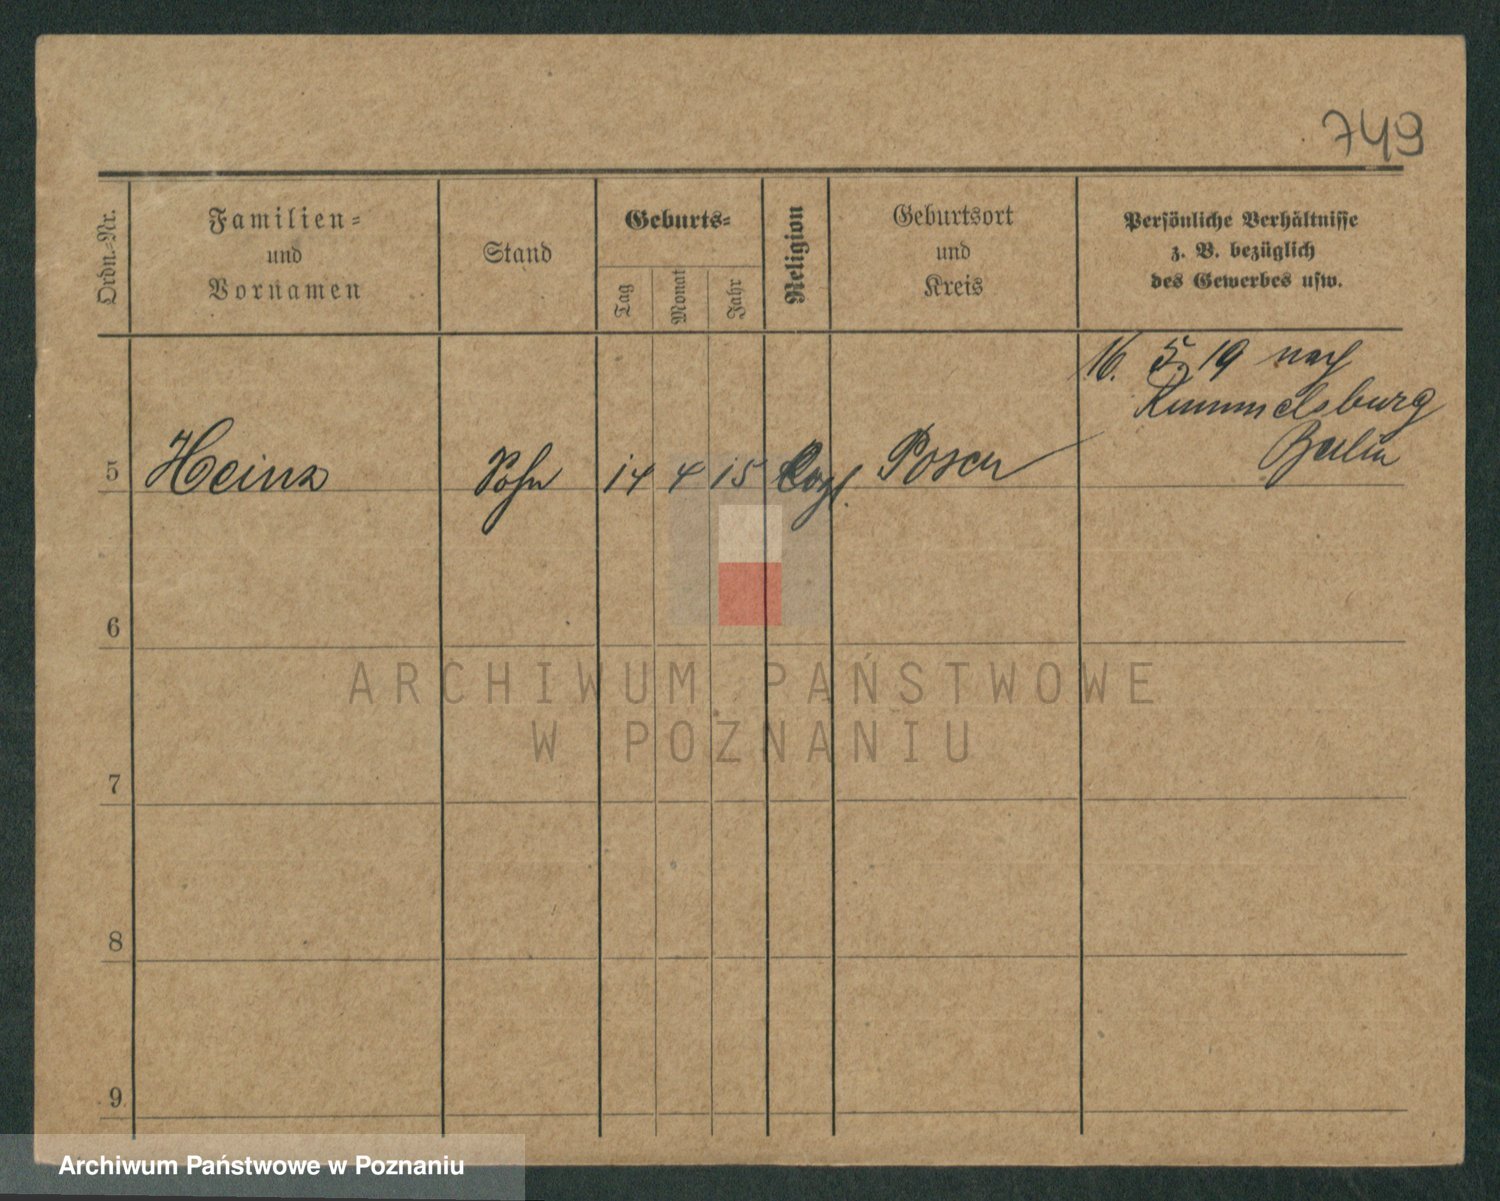 749
Ordn.-Nr.
Familien-
und
Vornamen
Stand
Geburts-
Tag
Monat
Jahr
Religion
Geburtsort
und
Kreis
Persönliche Verhältnisse
z. B. bezüglich
des Gewerbes usw.
16. 5. 19 nach
Rummelsburg
Berlin
5 Heinz Sohn 14 4 15 Posen
6
ARCHIWUM PAŃSTWOWE
W POZNANIU
7
8
9
Archiwum Państwowe w Poznaniu